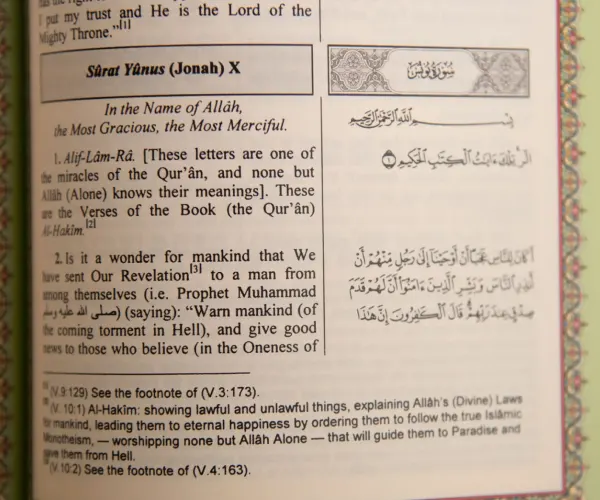 I put my trust and He is the Lord of the
Mighty Throne."[1]
Sûrat Yûnus (Jonah) X
سُورَةُ يُونُسَ
In the Name of Allâh,
the Most Gracious, the Most Merciful.
بِسْمِ اللَّهِ الرَّحْمَٰنِ الرَّحِيمِ
1. Alif-Lâm-Râ. [These letters are one of
the miracles of the Qur'ân, and none but
Allâh (Alone) knows their meanings]. These
are the Verses of the Book (the Qur'ân)
Al-Hakîm.[2]
الٓر تِلْكَ ءَايَٰتُ ٱلْكِتَٰبِ ٱلْحَكِيمِ ١
2. Is it a wonder for mankind that We
have sent Our Revelation[3] to a man from
among themselves (i.e. Prophet Muhammad
صلى الله عليه وسلم) (saying): "Warn mankind (of
the coming torment in Hell), and give good
news to those who believe (in the Oneness of
أَكَانَ لِلنَّاسِ عَجَبًا أَنْ أَوْحَيْنَآ إِلَىٰ رَجُلٍ مِّنْهُمْ أَنْ
أَنذِرِ ٱلنَّاسَ وَبَشِّرِ ٱلَّذِينَ ءَامَنُوٓا۟ أَنَّ لَهُمْ قَدَمَ
صِدْقٍ عِندَ رَبِّهِمْ قَالَ ٱلْكَٰفِرُونَ إِنَّ هَٰذَا
(V.9:129) See the footnote of (V.3:173).
(V. 10:1) Al-Hakîm: showing lawful and unlawful things, explaining Allâh's (Divine) Laws
for mankind, leading them to eternal happiness by ordering them to follow the true Islâmic
Monotheism, — worshipping none but Allâh Alone — that will guide them to Paradise and
save them from Hell.
(V.10:2) See the footnote of (V.4:163).